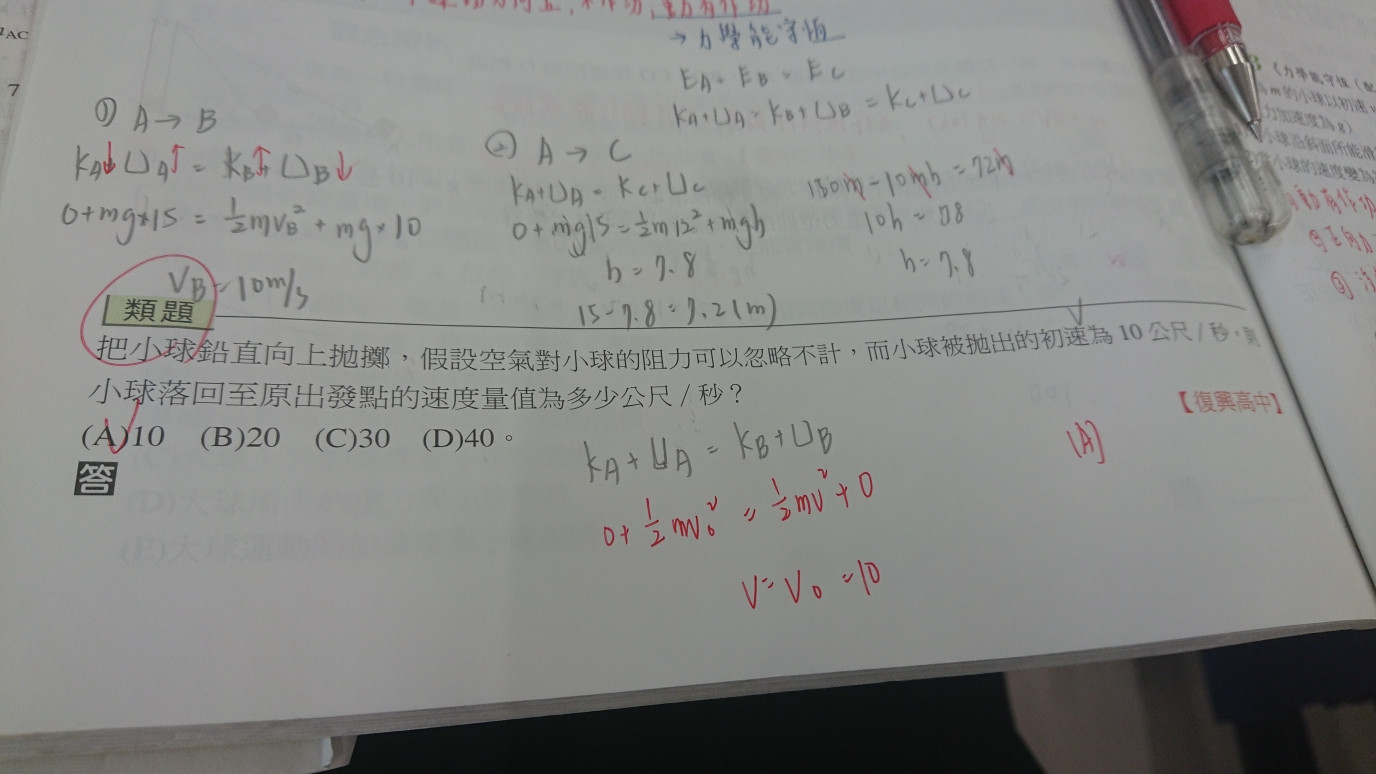 →力學能守恆
E_A = E_B = E_C
K_A+U_A = K_B+U_B = K_C+U_C
① A → B
K_A↓ U_A↑ = K_B↑+U_B↓
0+mg×15 = ½mv_B² + mg×10
V_B = 10m/s
② A → C
K_A+U_A = K_C+U_C
0+mg15 = ½m12²+mgh
h = 7.8
15-7.8 = 7.2(m)
150m-10mh = 72m
10h = 78
h = 7.8
類題
把小球鉛直向上拋擲,假設空氣對小球的阻力可以忽略不計,而小球被拋出的初速為 10 公尺/秒,則
小球落回至原出發點的速度量值為多少公尺/秒?
【復興高中】
(A)10 (B)20 (C)30 (D)40。
答
K_A+U_A = K_B+U_B
0+½mv₀² = ½mv²+0
V = V₀ = 10
(A)
7
《力學能守恆
m的小球以初速
力加速度為g)
小球沿斜面所能
小球的速度變為